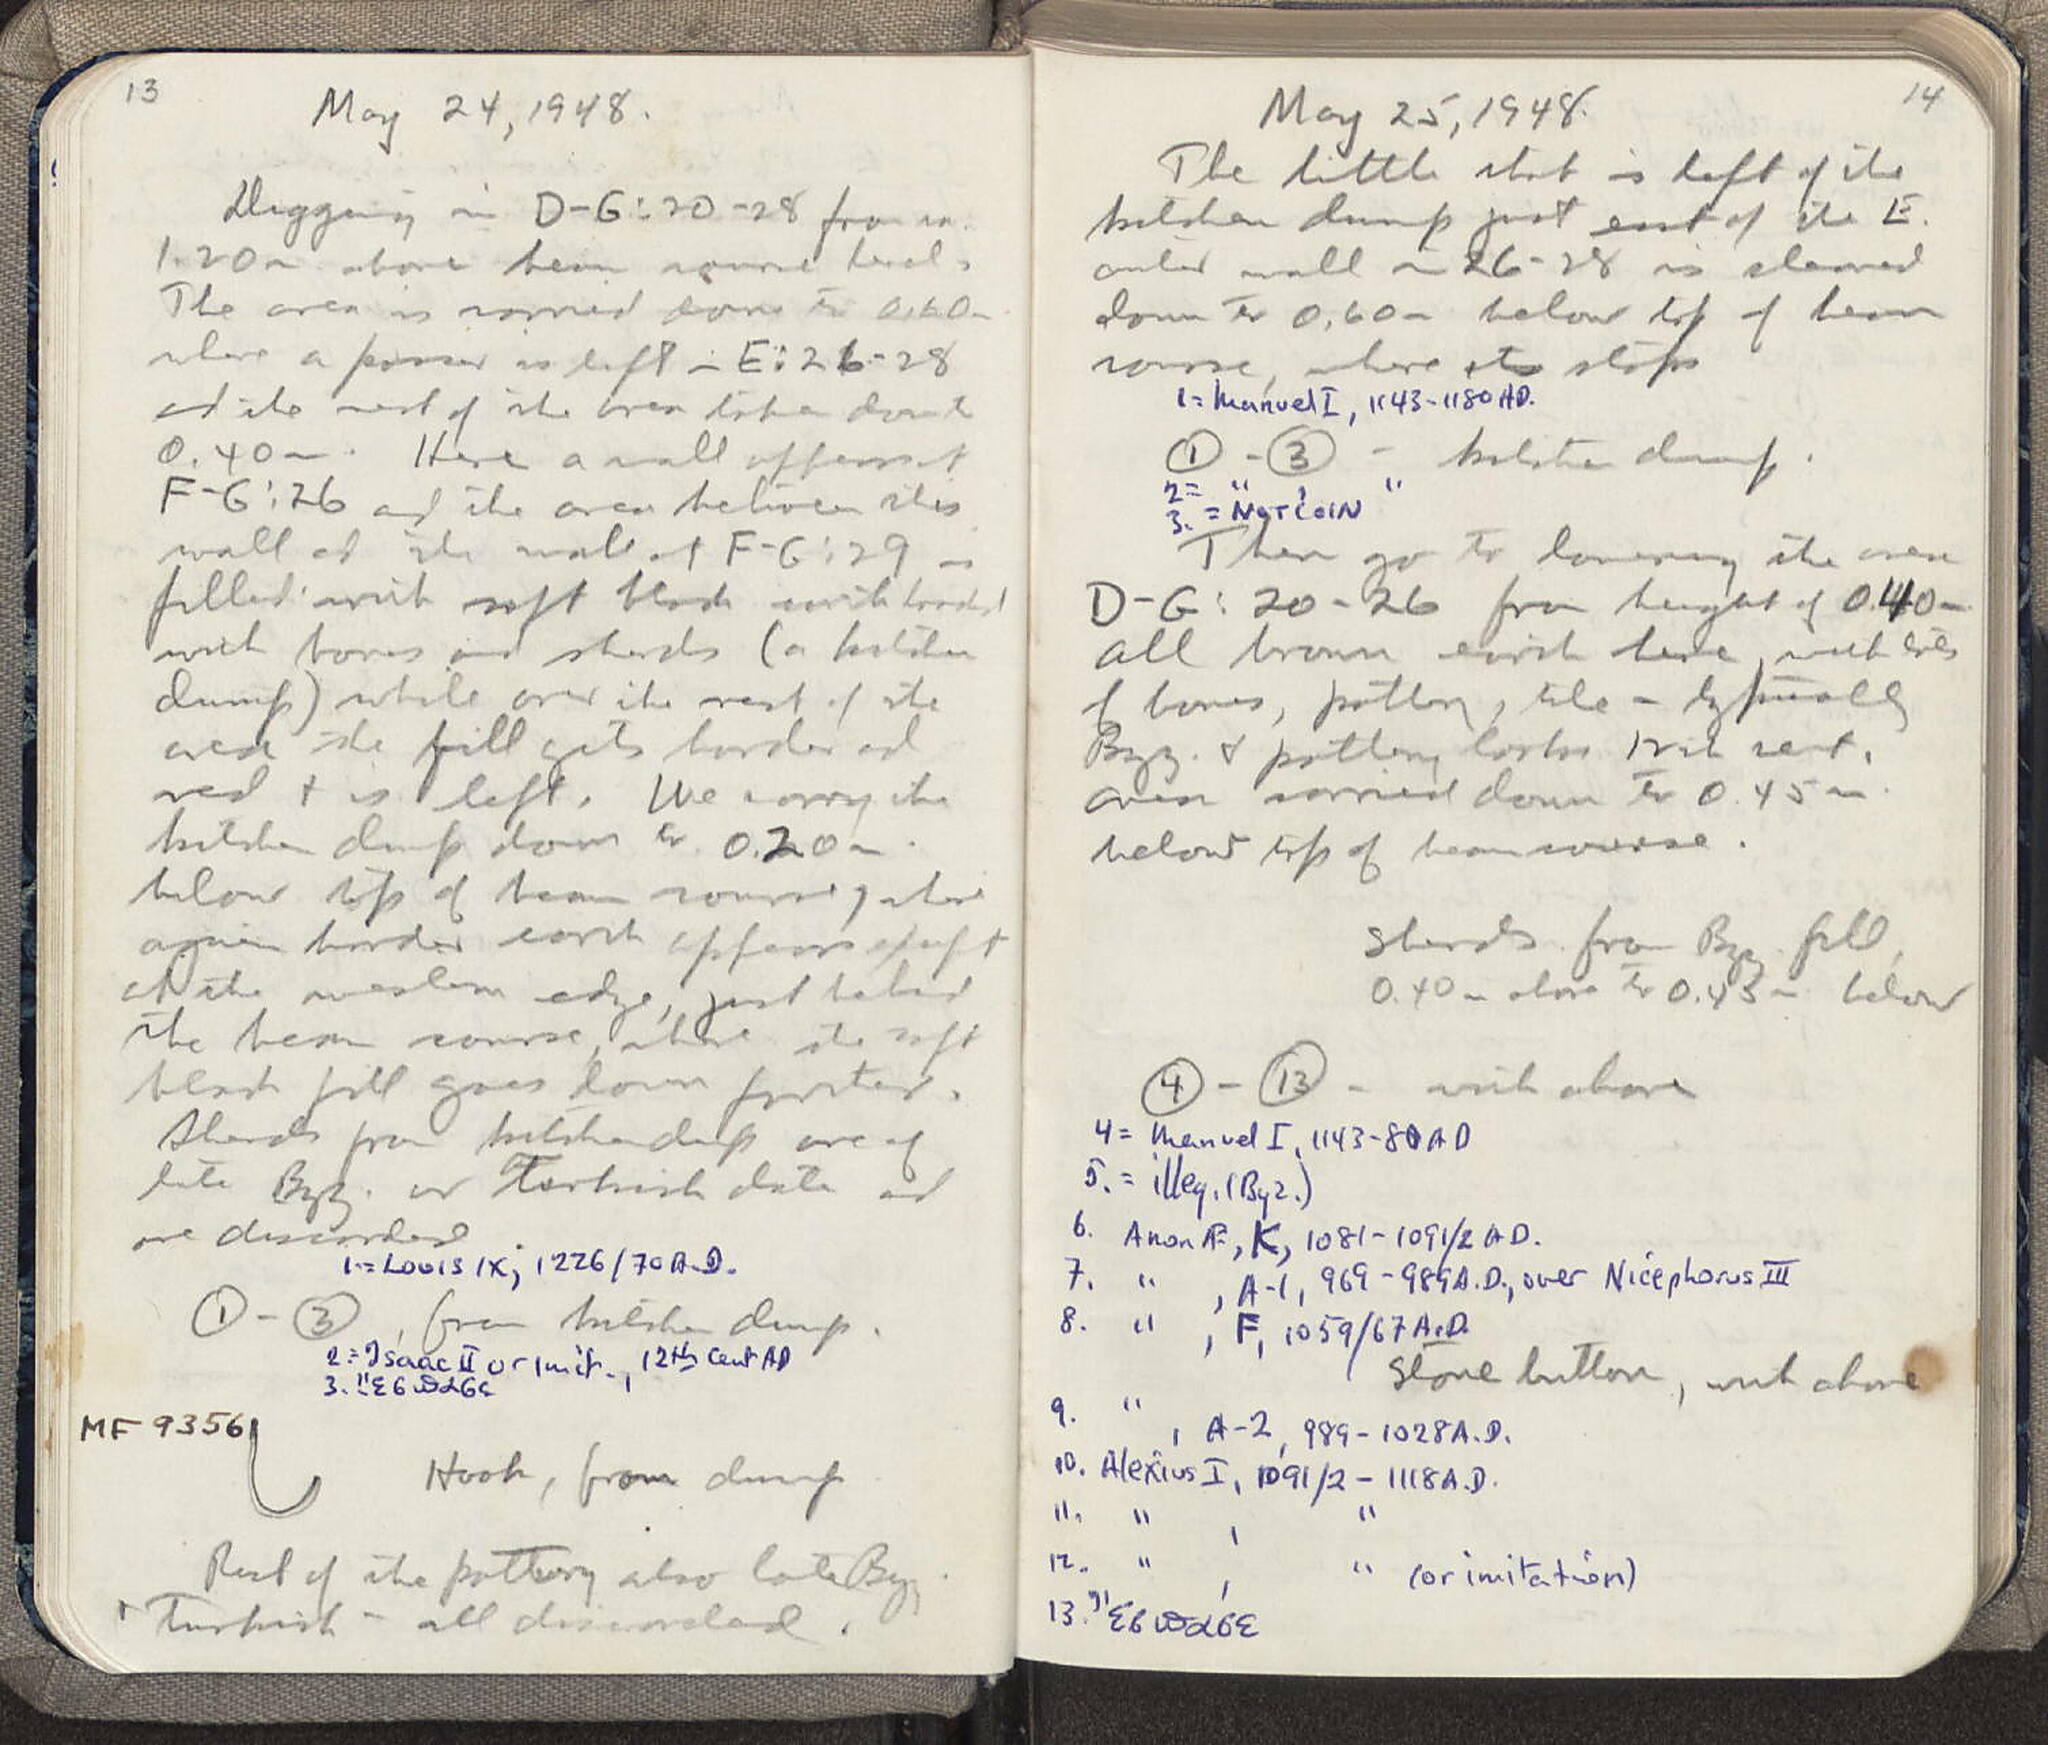 13
May 24, 1948.
Digging in D-G:20-28 from ca.
1.20m above beam course level.
The area is carried down to 0.60m
where a packed is left in E:26-28
and the rest of the area taken down to
0.40m. Here a wall appears at
F-G:26 and the area between this
wall and the wall at F-G:29 is
filled with soft black earth loaded
with bones and sherds (a kitchen
dump) while over the rest of the
area the fill gets harder and
red & is left. We carry the
kitchen dump down to 0.20m.
below top of beam course, where
again harder earth appears except
at the western edge, just behind
the beam course, where the soft
black fill goes down further.
Sherds from kitchen dump are of
late Byz. or Turkish date and
are discarded
1.= Louis IX, 1226/70 A.D.
① - ③, from kitchen dump.
2.= Isaac II or imit., 12th cent AD
3. = "Εσωσσε
MF 9356
Hook, from dump
Rest of the pottery also late Byz.
+ Turkish - all discarded.
14
May 25, 1948.
The little that is left of the
kitchen dump just east of the E.
outer wall in 26-28 is cleaned
down to 0.60m below top of beam
course, where it stops
1= Manuel I, 1143-1180 AD.
① - ③ - kitchen dump.
2= " , "
3. = NOT COIN
Then go to lowering the area
D-G: 20-26 from height of 0.40m
all brown earth here, with bits
of bones, pottery, tile - typically
Byz. & pottery looks 12th cent.
Area carried down to 0.45m.
below top of beam course.
Sherds from Byz. fill,
0.40m above to 0.45m below
④ - ⑬ - with above
4= Manuel I, 1143-80 AD
5. = illeg. (Byz.)
6. Anon Æ, K, 1081-1091/2 AD.
7. " , A-1, 969-989 A.D., over Nicephorus III
8. " , F, 1059/67 A.D.
Stone button, with above
9. " , A-2, 989-1028 A.D.
10. Alexius I, 1091/2 - 1118 A.D.
11. " , "
12. " , " (or imitation)
13. "